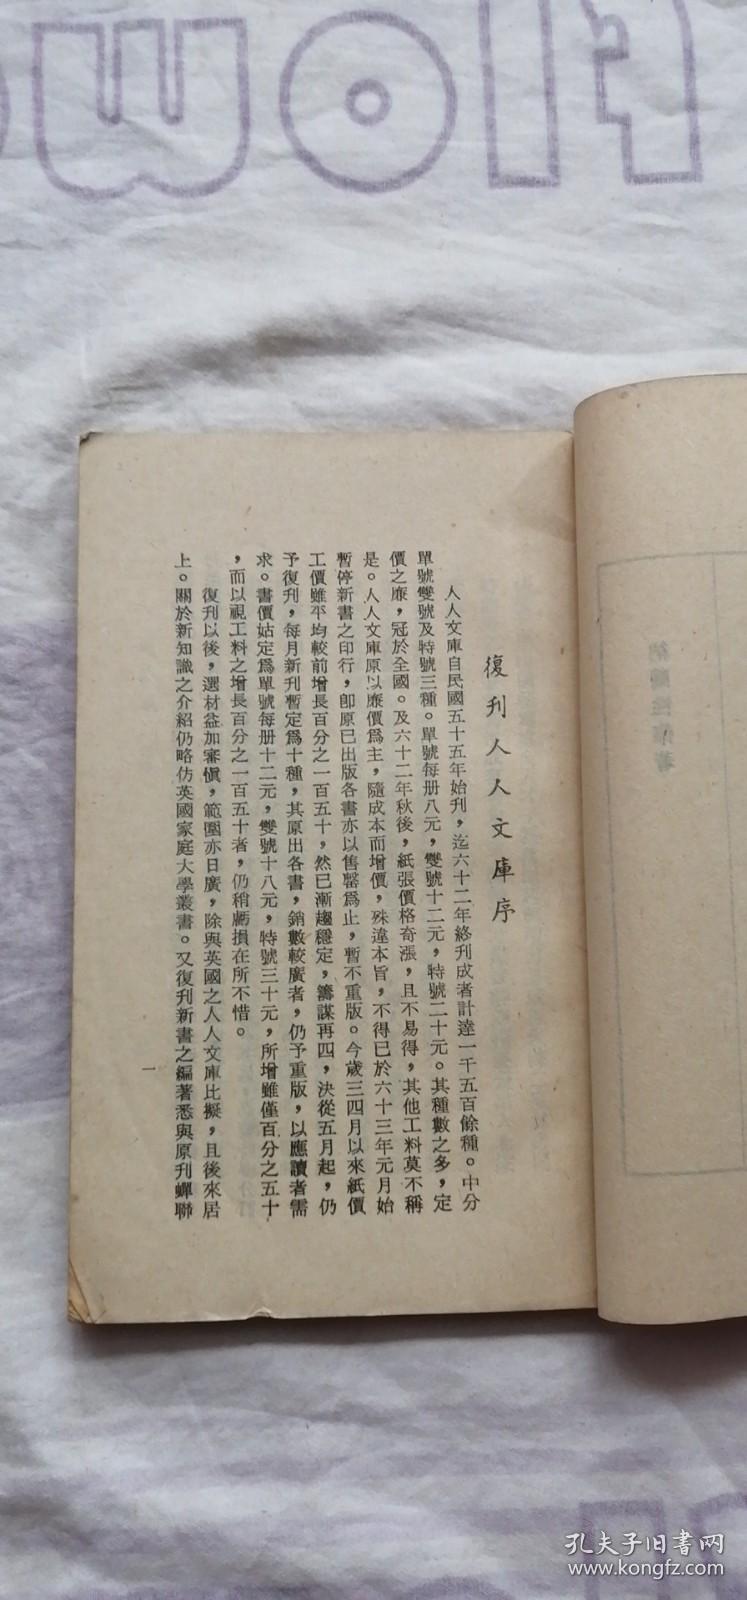 復刊人人文庫序
人人文庫自民國五十五年始刊，迄六十二年終刋成者計達一千五百餘種。中分
單號雙號及特號三種。單號每册八元，雙號十二元，特號二十元。其種數之多，定
價之廉，冠於全國。及六十二年秋後，紙張價格奇漲，且不易得，其他工料莫不稱
是。人人文庫原以廉價爲主，隨成本而增價，殊違本旨，不得已於六十三年元月始
暫停新書之印行，卽原已出版各書亦以售罄爲止，暫不重版。今歲三四月以來紙價
工價雖平均較前增長百分之一百五十，然已漸趨穩定，籌謀再四，決從五月起，仍
予復刊，每月新刊暫定爲十種，其原出各書，銷數較廣者，仍予重版，以應讀者需
求。書價姑定爲單號每册十二元，雙號十八元，特號三十元，所增雖僅百分之五十
，而以視工料之增長百分之一百五十者，仍稍虧損在所不惜。
復刊以後，選材益加審愼，範圍亦日廣，除與英國之人人文庫比擬，且後來居
上。關於新知識之介紹仍略仿英國家庭大學叢書。又復刊新書之編著悉與原刊蟬聯
一
孔夫子旧书网
www.kongfz.com